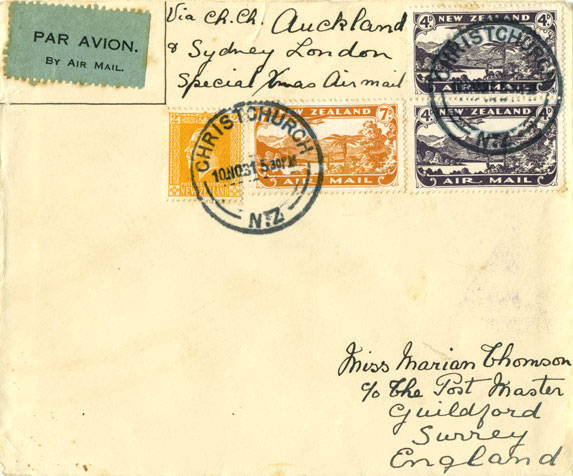 PAR AVION.
BY AIR MAIL.
Via Ch. Ch. Auckland
& Sydney London
Special Xmas Air mail
4D NEW ZEALAND 4D
AIR MAIL
CHRISTCHURCH
N.Z
4D NEW ZEALAND 4D
AIR MAIL
NEW ZEALAND 7D
AIR MAIL
CHRISTCHURCH
10NO31 5.30PM
N.Z
Miss Marian Thomson
c/o The Post Master
Guildford
Surrey
England